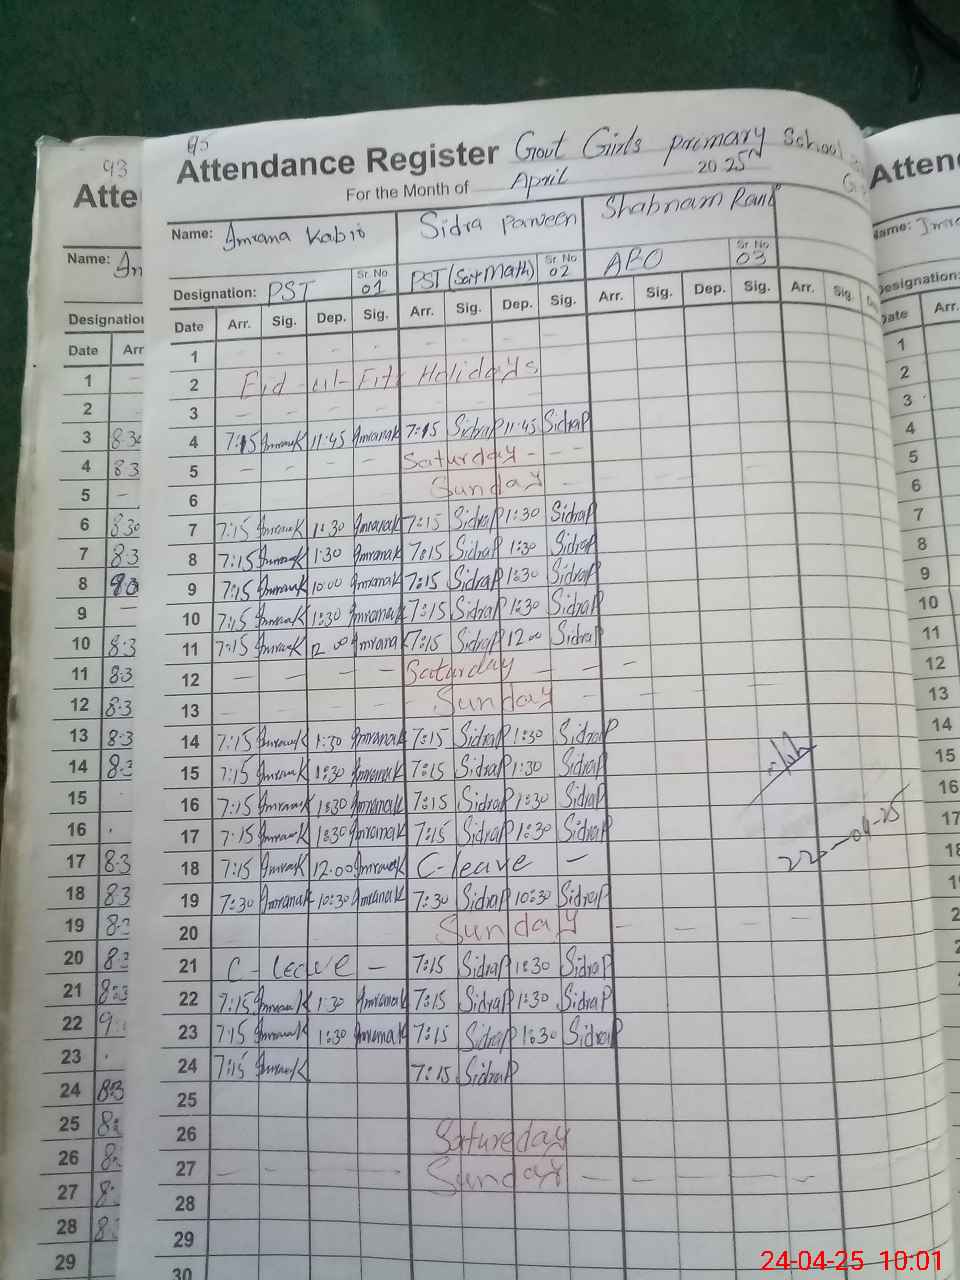 95
Attendance Register Govt Girls primary School
For the Month of April 2025
Name: Amrana Kabir Sidra Parveen Shabnam Rani
Designation: PST Sr. No 01 PST (Sci+Math) Sr. No 02 ARO Sr. No 03
Date Arr. Sig. Dep. Sig. Arr. Sig. Dep. Sig. Arr. Sig. Dep. Sig. Arr. Sig.
1 - - - -
2 Eid-ul-Fitr Holidays
3 - - - -
4 7:15 AmranaK 11:45 AmranaK 7:15 SidraP 11:45 SidraP
5 - - - - Saturday - - -
6 Sunday
7 7:15 AmranaK 1:30 AmranaK 7:15 SidraP 1:30 SidraP
8 7:15 AmranaK 1:30 AmranaK 7:15 SidraP 1:30 SidraP
9 7:15 AmranaK 10:00 AmranaK 7:15 SidraP 1:30 SidraP
10 7:15 AmranaK 1:30 AmranaK 7:15 SidraP 1:30 SidraP
11 7:15 AmranaK 12:00 AmranaK 7:15 SidraP 12:00 SidraP
12 - - - - Saturday - - -
13 - - - - Sunday - -
14 7:15 AmranaK 1:30 AmranaK 7:15 SidraP 1:30 SidraP
15 7:15 AmranaK 1:30 AmranaK 7:15 SidraP 1:30 SidraP
16 7:15 AmranaK 1:30 AmranaK 7:15 SidraP 1:30 SidraP
17 7:15 AmranaK 1:30 AmranaK 7:15 SidraP 1:30 SidraP
18 7:15 AmranaK 12:00 AmranaK C-leave -
22-04-25
19 7:30 AmranaK 10:30 AmranaK 7:30 SidraP 10:30 SidraP
20 Sunday - - - -
21 C-leave - 7:15 SidraP 1:30 SidraP
22 7:15 AmranaK 1:30 AmranaK 7:15 SidraP 1:30 SidraP
23 7:15 AmranaK 1:30 AmranaK 7:15 SidraP 1:30 SidraP
24 7:15 AmranaK 7:15 SidraP
25
26 Satureday
27 - - - - Sunday - - - - -
28
29
30
93
Atte
Name: An
Designation
Date Arr
1 -
2
3 8:30
4 8:3
5 -
6 8:30
7 8:3
8
9 -
10 8:3
11 8:3
12 8:3
13 8:3
14 8:3
15
16
17 8:3
18 8:3
19 8:3
20 8:3
21 8:3
22 9:
23
24 8:3
25 8:
26 8:
27 8:
28 8:
29
Atten
Name:
Designation:
Date Arr.
1
2
3
4
5
6
7
8
9
10
11
12
13
14
15
16
17
18
24-04-25 10:01